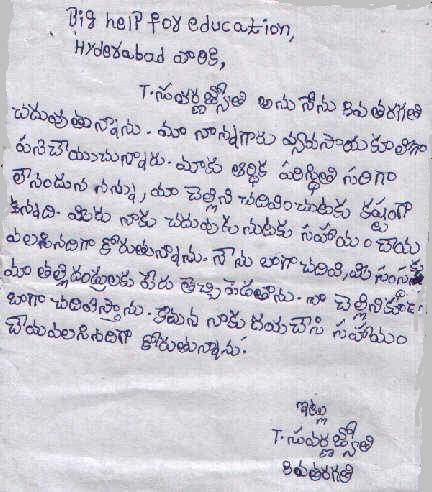 Big help for education,
Hyderabad వారికి,
T. సువర్ణజ్యోతి అను నేను 8వ తరగతి
చదువుతున్నాను. మా నాన్నగారు వ్యవసాయ కూలీగా
పనిచేయుచున్నారు. మాకు ఆర్థిక పరిస్థితి సరిగా
లేనందున నన్ను, మా చెల్లిని చదివించుటకు కష్టంగా
ఉన్నది. మీరు నాకు చదువుకునుటకు సహాయం చేయ
వలసినదిగా కోరుతున్నాను. నేను బాగా చదివి, మీ సంస్థకు
మా తల్లిదండ్రులకు పేరు తెచ్చి పెడతాను. నా చెల్లిని కూడా
బాగా చదివిస్తాను. కావున నాకు దయచేసి సహాయం
చేయవలసినదిగా కోరుతున్నాను.
ఇట్లు
T. సువర్ణజ్యోతి
8వ తరగతి